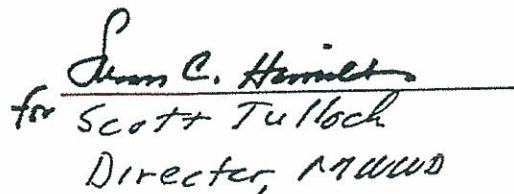 Susan C. Hamilton
for Scott Tulloch
Director, MWWD